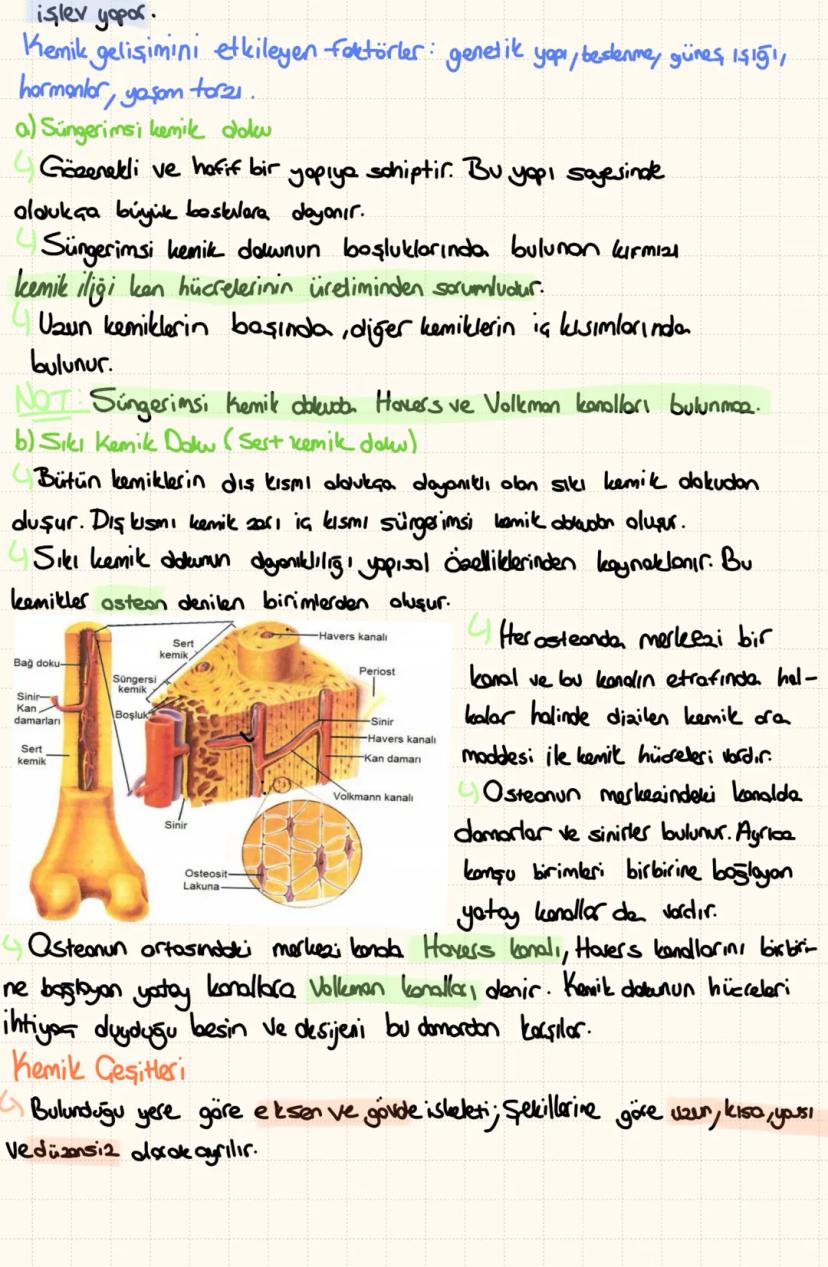 işlev yapar.
Kemik gelişimini etkileyen faktörler: genetik yapı, beslenme, güneş ışığı,
hormonlar, yaşam tarzı.
a) Süngerimsi kemik doku
Gözenekli ve hafif bir yapıya sahiptir. Bu yapı sayesinde
oldukça büyük baskılara dayanır.
Süngerimsi kemik dokunun boşluklarında bulunan kırmızı
kemik iliği kan hücrelerinin üretiminden sorumludur.
Uzun kemiklerin başında, diğer kemiklerin iç kısımlarında
bulunur.
NOT: Süngerimsi kemik dokuda Havers ve Volkman kanalları bulunmaz.
b) Sıkı Kemik Doku (Sert kemik doku)
Bütün kemiklerin dış kısmı oldukça dayanıklı olan sıkı kemik dokudan
oluşur. Dış kısmı kemik zarı iç kısmı süngerimsi kemik dokudan oluşur.
Sıkı kemik dokunun dayanıklılığı yapısal özelliklerinden kaynaklanır. Bu
kemikler osteon denilen birimlerden oluşur.
Bağ doku
Sinir
Kan damarları
Sert kemik
Sert kemik
Süngersi kemik
Boşluk
Sinir
Havers kanalı
Periost
Sinir
Havers kanalı
Kan damarı
Volkmann kanalı
Osteosit
Lakuna
Her osteonda merkezi bir
kanal ve bu kanalın etrafında hal-
kalar halinde dizilen kemik ara
maddesi ile kemik hücreleri vardır.
Osteonun merkezindeki kanalda
damarlar ve sinirler bulunur. Ayrıca
komşu birimleri birbirine bağlayan
yatay kanallar da vardır.
Osteonun ortasındaki merkezi kanala Havers kanalı, Havers kanallarını birbiri-
ne bağlayan yatay kanallara Volkman kanalları denir. Kemik dokunun hücreleri
ihtiyaç duyduğu besin ve oksijeni bu damardan karşılar.
Kemik Çeşitleri
Bulunduğu yere göre eksen ve gövde iskeleti; Şekillerine göre uzun, kısa, yassı
ve düzensiz olarak ayrılır.